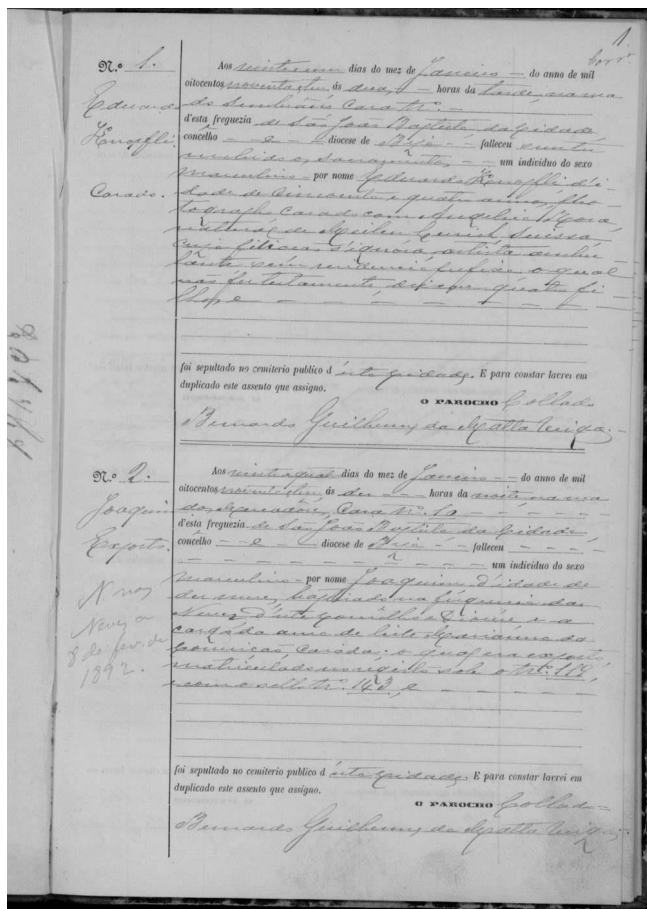 1.
Corrº
N.º 1.
Eduardo
Knopfli
Casado.
Aos vinte e um dias do mez de Janeiro do anno de mil
oitocentos noventa e tres ás duas horas da tarde, na rua
do
d'esta freguezia de São João Baptista da cidade
concelho e diocese de Beja falleceu
sacramentos um individuo do sexo
masculino por nome Eduardo Knopfli d'i-
dade de cincoenta e quatro annos, pho-
tographo casado com
natural de Suissa
cuja filiação s'ignora, artista ambu-
lante sem residencia fixa o qual
não fez testamento, deixou quatro fi-
lhos, e
foi sepultado no cemiterio publico d'esta cidade. E para constar lavrei em
duplicado este assento que assigno.
O PAROCHO Collado
Bernardo Guilherme da Matta Veiga.
N.º 2.
Joaquim
Exposto.
N nas
Neves a
8 de fev. de
1892.
Aos vinte e quatro dias do mez de Janeiro do anno de mil
oitocentos noventa e tres ás dez horas da noite, na rua
do Casa Nº 10
d'esta freguezia de São João Baptista da cidade,
concelho e diocese de Beja falleceu
um individuo do sexo
masculino por nome Joaquim d'idade de
dez mezes, baptisado na freguezia das
Neves d'este concelho e Diocese e a
cargo da ama de leite Marianna da
Conceição, casada; o qual era exposto
matriculado no registo sob o Nº 119,
e com o sello Nº 143, e
foi sepultado no cemiterio publico d'esta cidade. E para constar lavrei em
duplicado este assento que assigno.
O PAROCHO Collado
Bernardo Guilherme da Matta Veiga.